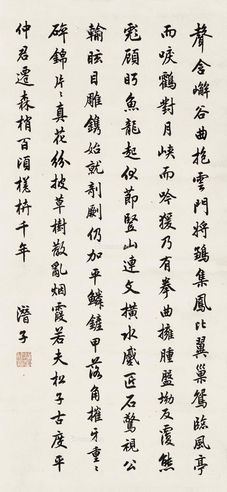 聲含嶰谷曲抱雲門將鵄集鳳比翼巢鴛臨風亭
而唳鶴對月峽而吟猨乃有拳曲擁腫盤坳反覆熊
彪顧盻魚龍起伏節豎山連文橫水蹙匠石驚視公
輸眩目雕鐫始就剞劂仍加平鱗鏟甲落角摧牙重〻
碎錦片〻真花紛披草樹散亂烟霞若夫松子古度平
仲君遷森梢百頃槎枿千年 潛子